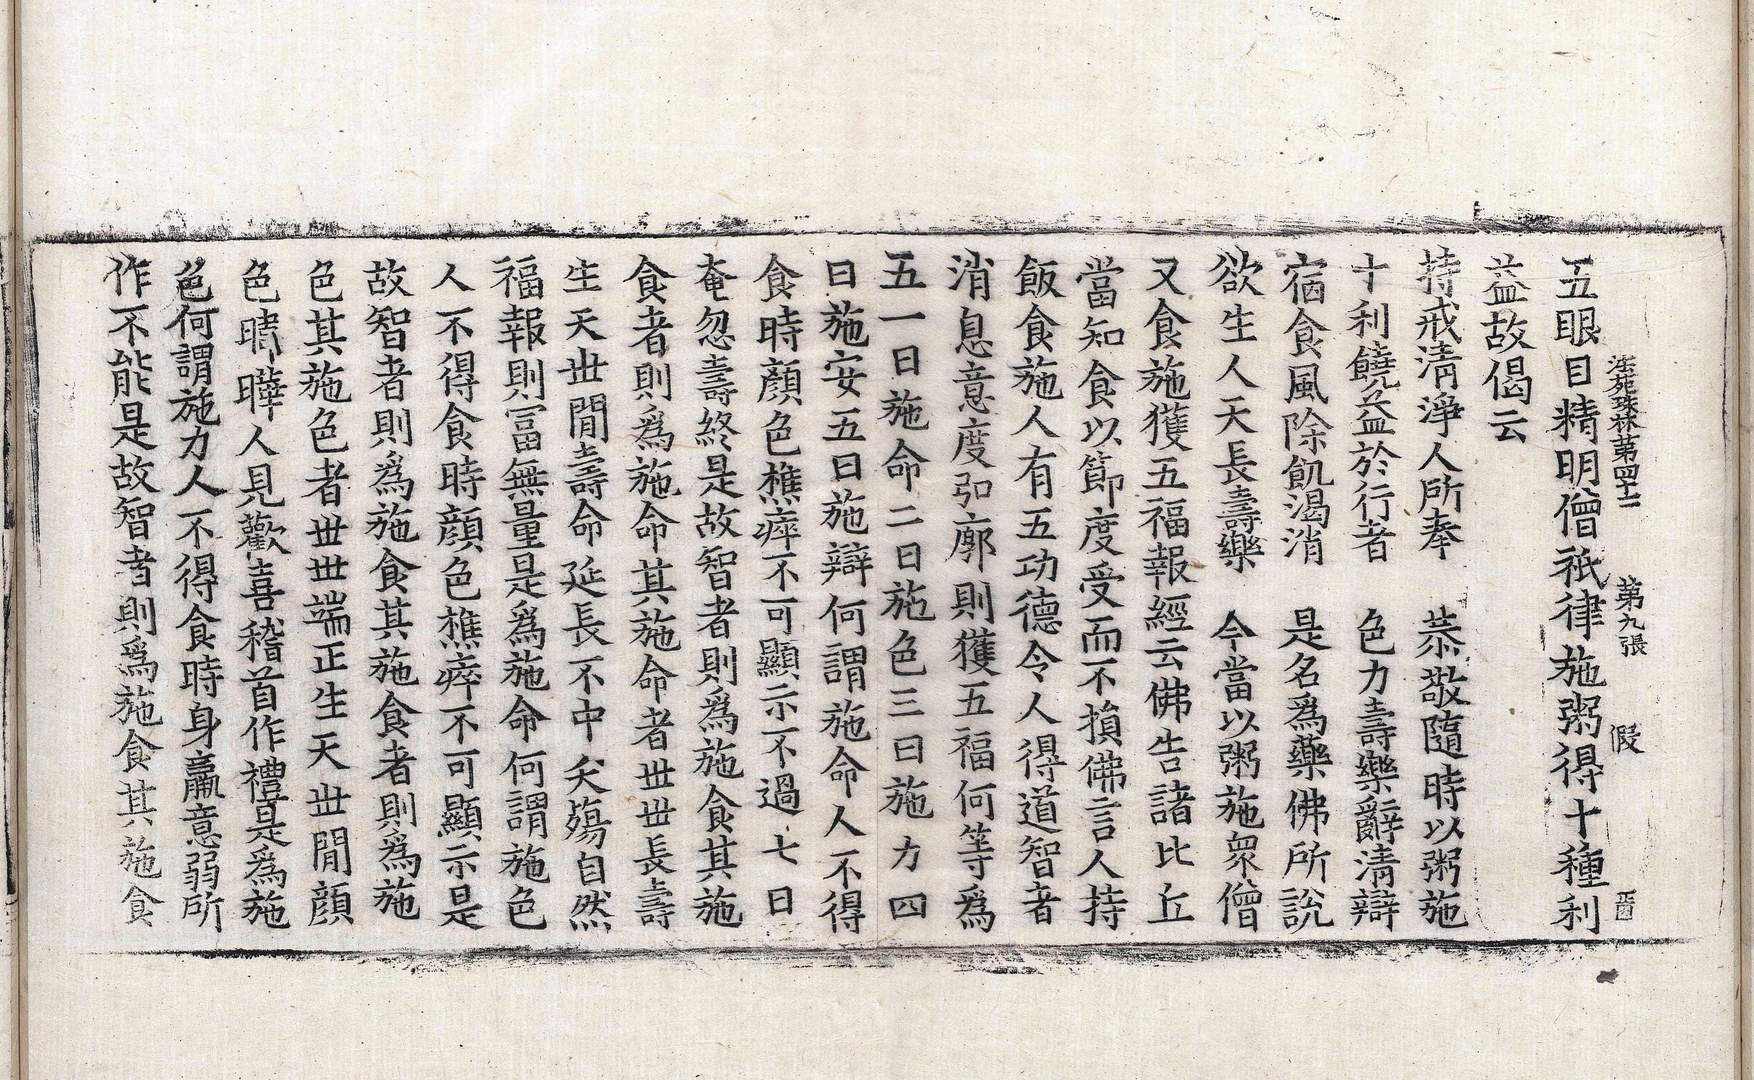 法苑珠林第四十二　第九張　假
五眼目精明僧祇律施粥得十種利
益故偈云
持戒淸淨人所奉　恭敬隨時以粥施
十利饒益於行者　色力壽樂辭淸辯
宿食風除飢渴消　是名爲藥佛所說
欲生人天長壽樂　今當以粥施衆僧
又食施獲五福報經云佛告諸比丘
當知食以節度受而不損佛言人持
飯食施人有五功德令人得道智者
消息意度弘廓則獲五福何等爲
五一曰施命二曰施色三曰施力四
曰施安五曰施辯何謂施命人不得
食時顏色憔瘁不可顯示不過七日
奄忽壽終是故智者則爲施食其施
食者則爲施命其施命者世世長壽
生天世閒壽命延長不中夭殤自然
福報則冨無量是爲施命何謂施色
人不得食時顏色憔瘁不可顯示是
故智者則爲施食其施食者則爲施
色其施色者世世端正生天世閒顏
色暐曄人見歡喜稽首作禮是爲施
色何謂施力人不得食時身羸意弱所
作不能是故智者則爲施食其施食